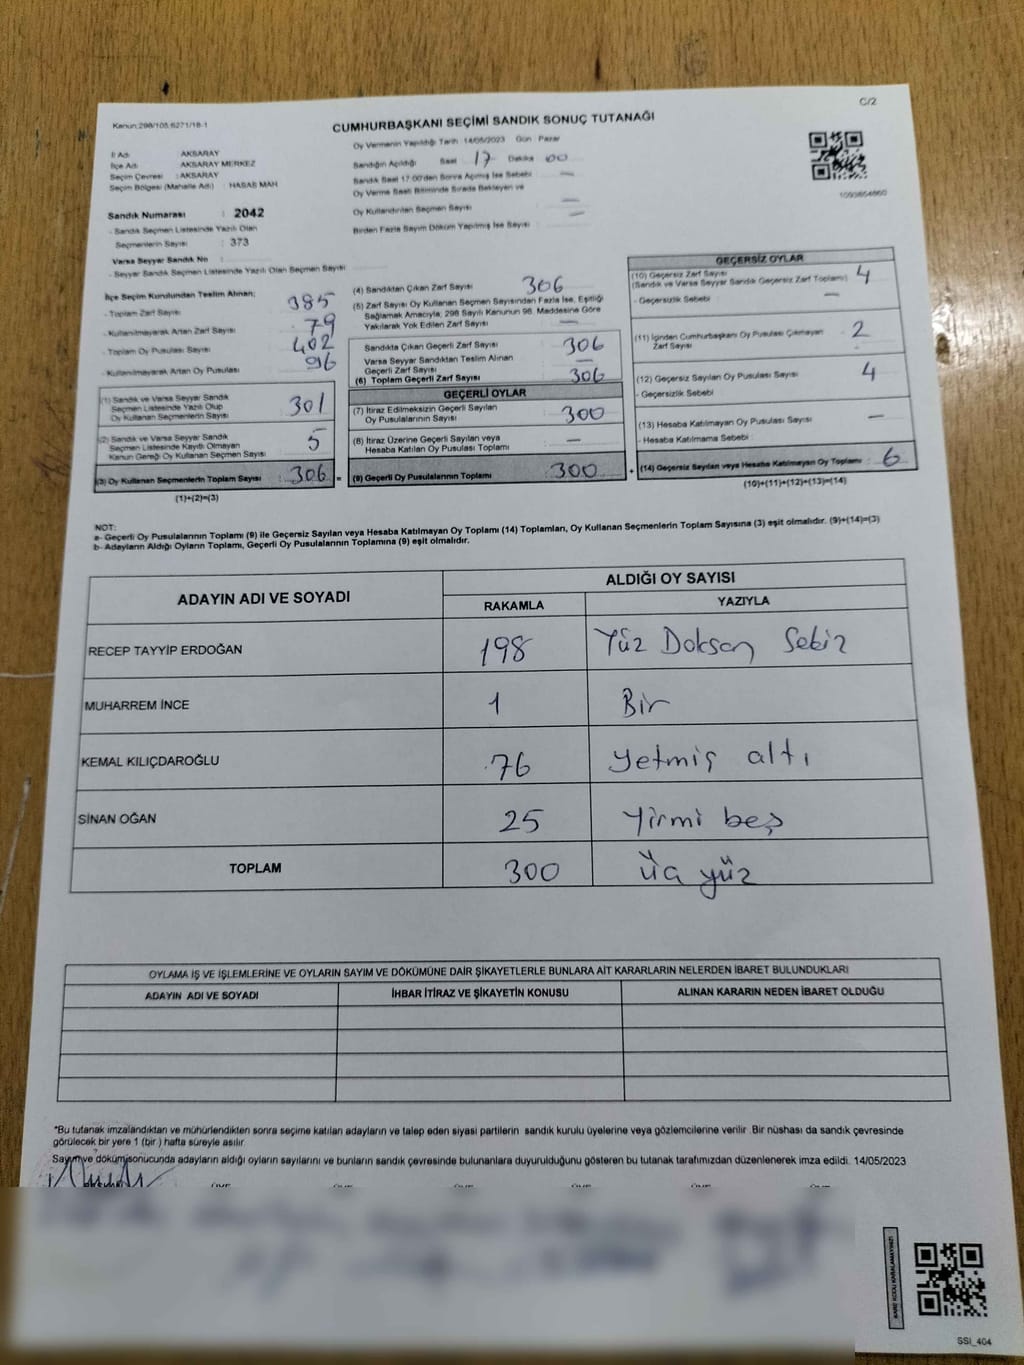 C/2
Kanun:298/105,6271/18-1
CUMHURBAŞKANI SEÇİMİ SANDIK SONUÇ TUTANAĞI
İl Adı : AKSARAY
İlçe Adı : AKSARAY MERKEZ
Seçim Çevresi : AKSARAY
Seçim Bölgesi (Mahalle Adı) : HASAS MAH
Sandık Numarası : 2042
- Sandık Seçmen Listesinde Yazılı Olan
Seçmenlerin Sayısı : 373
Varsa Seyyar Sandık No :
- Seyyar Sandık Seçmen Listesinde Yazılı Olan Seçmen Sayısı :
Oy Vermenin Yapıldığı Tarih 14/05/2023 Gün : Pazar
Sandığın Açıldığı Saat 17 Dakika 00
Sandık Saat 17.00'den Sonra Açılmış İse Sebebi —
Oy Verme Saati Bitiminde Sırada Bekleyen ve
Oy Kullandırılan Seçmen Sayısı —
Birden Fazla Sayım Döküm Yapılmış İse Sayısı : —
1093854860
İlçe Seçim Kurulundan Teslim Alınan;
- Toplam Zarf Sayısı : 385
- Kullanılmayarak Artan Zarf Sayısı : 79
- Toplam Oy Pusulası Sayısı : 402
- Kullanılmayarak Artan Oy Pusulası : 96
(1) Sandık ve Varsa Seyyar Sandık
Seçmen Listesinde Yazılı Olup
Oy Kullanan Seçmenlerin Sayısı : 301
(2) Sandık ve Varsa Seyyar Sandık
Seçmen Listesinde Kayıtlı Olmayan
Kanun Gereği Oy Kullanan Seçmen Sayısı : 5
(3) Oy Kullanan Seçmenlerin Toplam Sayısı : 306 =
(1)+(2)=(3)
(4) Sandıktan Çıkan Zarf Sayısı : 306
(5) Zarf Sayısı Oy Kullanan Seçmen Sayısından Fazla İse, Eşitliği
Sağlamak Amacıyla, 298 Sayılı Kanunun 98. Maddesine Göre
Yakılarak Yok Edilen Zarf Sayısı : —
Sandıkta Çıkan Geçerli Zarf Sayısı : 306
Varsa Seyyar Sandıktan Teslim Alınan
Geçerli Zarf Sayısı : —
(6) Toplam Geçerli Zarf Sayısı : 306
GEÇERLİ OYLAR
(7) İtiraz Edilmeksizin Geçerli Sayılan
Oy Pusulalarının Sayısı : 300
(8) İtiraz Üzerine Geçerli Sayılan veya
Hesaba Katılan Oy Pusulası Toplamı : —
(9) Geçerli Oy Pusulalarının Toplamı : 300 +
GEÇERSİZ OYLAR
(10) Geçersiz Zarf Sayısı
(Sandık ve Varsa Seyyar Sandık Geçersiz Zarf Toplamı) : 4
- Geçersizlik Sebebi : —
(11) İçinden Cumhurbaşkanı Oy Pusulası Çıkmayan
Zarf Sayısı : 2
(12) Geçersiz Sayılan Oy Pusulası Sayısı : 4
- Geçersizlik Sebebi :
(13) Hesaba Katılmayan Oy Pusulası Sayısı : —
- Hesaba Katılmama Sebebi :
(14) Geçersiz Sayılan veya Hesaba Katılmayan Oy Toplamı : 6
(10)+(11)+(12)+(13)=(14)
NOT:
a- Geçerli Oy Pusulalarının Toplamı (9) ile Geçersiz Sayılan veya Hesaba Katılmayan Oy Toplamı (14) Toplamları, Oy Kullanan Seçmenlerin Toplam Sayısına (3) eşit olmalıdır. (9)+(14)=(3)
b- Adayların Aldığı Oyların Toplamı, Geçerli Oy Pusulalarının Toplamına (9) eşit olmalıdır.
ADAYIN ADI VE SOYADI ALDIĞI OY SAYISI
RAKAMLA YAZIYLA
RECEP TAYYİP ERDOĞAN 198 Yüz Doksan Sekiz
MUHARREM İNCE 1 Bir
KEMAL KILIÇDAROĞLU 76 Yetmiş altı
SİNAN OĞAN 25 Yirmi beş
TOPLAM 300 Üç yüz
OYLAMA İŞ VE İŞLEMLERİNE VE OYLARIN SAYIM VE DÖKÜMÜNE DAİR ŞİKAYETLERLE BUNLARA AİT KARARLARIN NELERDEN İBARET BULUNDUKLARI
ADAYIN ADI VE SOYADI İHBAR İTİRAZ VE ŞİKAYETİN KONUSU ALINAN KARARIN NEDEN İBARET OLDUĞU
*Bu tutanak imzalandıktan ve mühürlendikten sonra seçime katılan adayların ve talep eden siyasi partilerin sandık kurulu üyelerine veya gözlemcilerine verilir .Bir nüshası da sandık çevresinde
görülecek bir yere 1 (bir ) hafta süreyle asılır.
Sayım ve dökümsonucunda adayların aldığı oyların sayılarını ve bunların sandık çevresinde bulunanlara duyurulduğunu gösteren bu tutanak tarafımızdan düzenlenerek imza edildi. 14/05/2023
KARE KODU KARALAMAYINIZ!
SSI_404